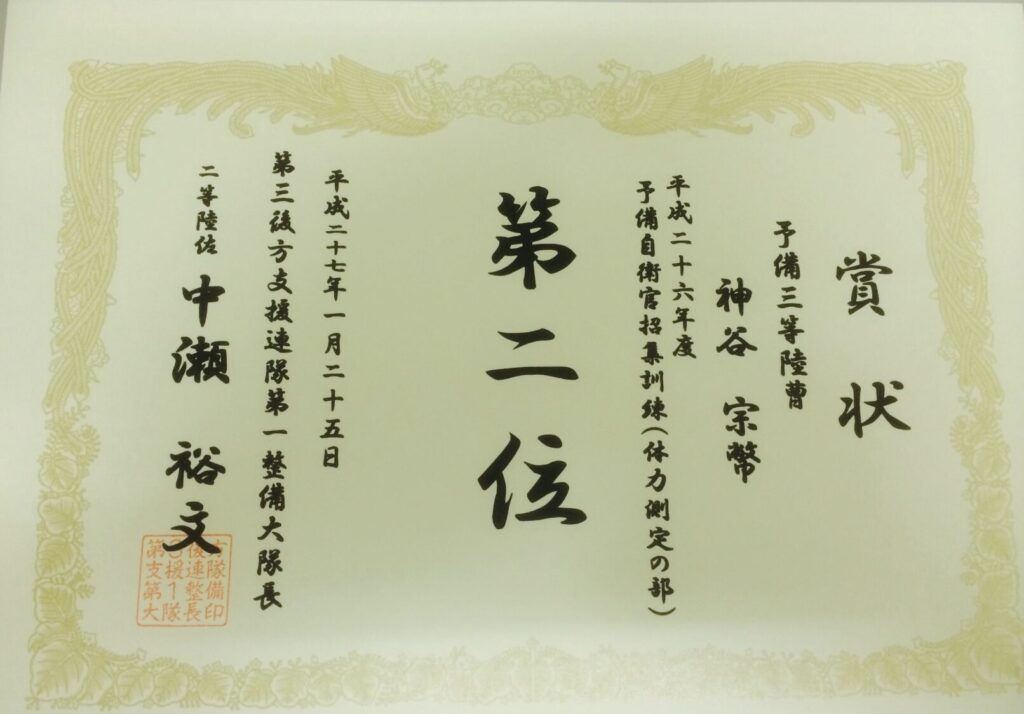 賞状
予備三等陸曹
神谷 宗幣
平成二十六年度
予備自衛官招集訓練(体力測定の部)
第二位
平成二十七年一月二十五日
第三後方支援連隊第一整備大隊長
二等陸佐 中瀬 裕文
方隊備印
後連整長
3援1隊
第支第大